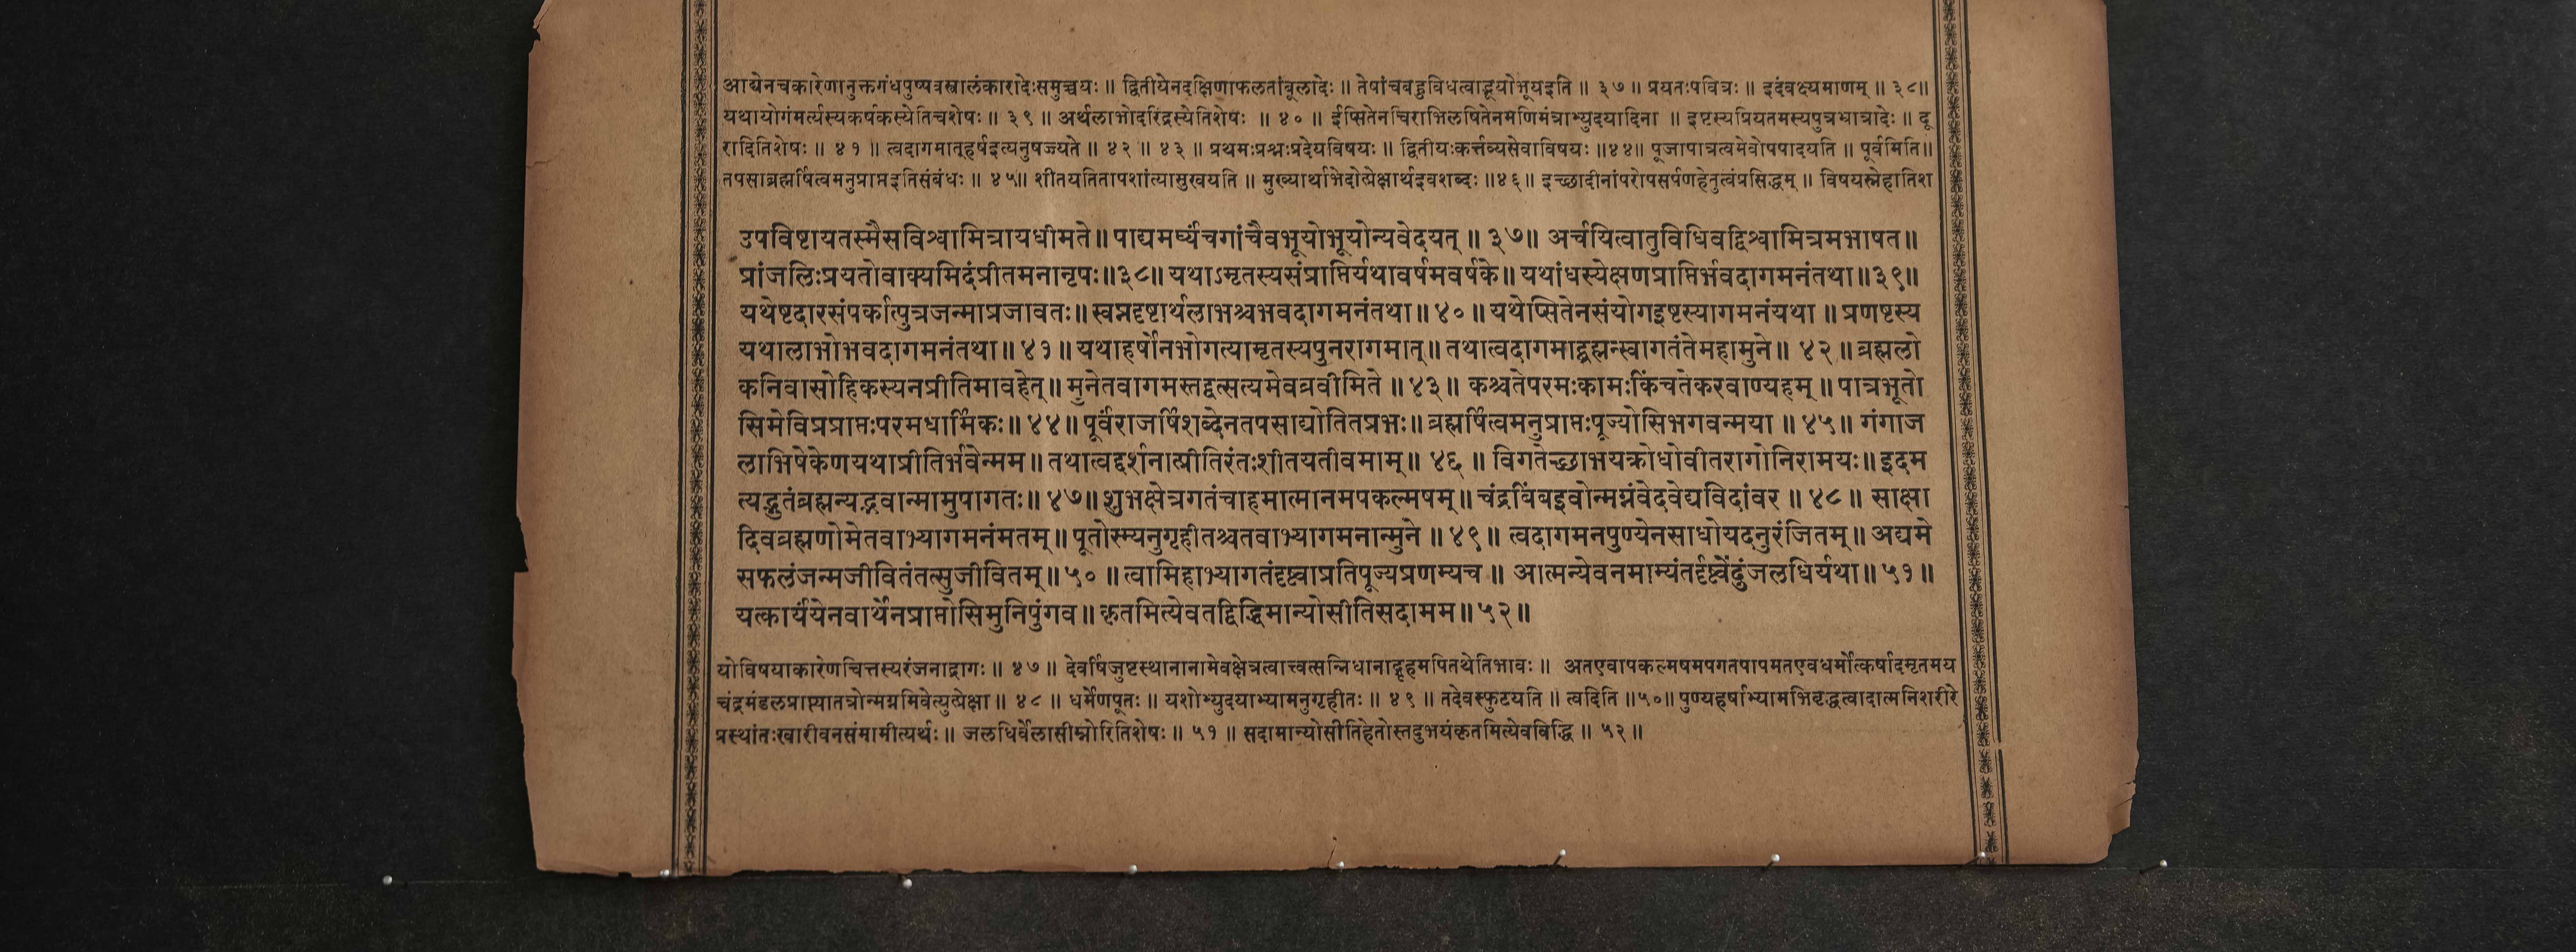 आद्येनचकारेणानुक्तगंधपुष्पवस्त्रालंकारादेःसमुच्चयः ॥ द्वितीयेनदक्षिणाफलतांबूलादेः ॥ तेषांचबहुविधत्वाद्भूयोभूयइति ॥ ३७ ॥ प्रयतःपवित्रः ॥ इदंवक्ष्यमाणम् ॥ ३८॥
यथायोगंमर्त्यस्यकर्षकस्येतिचशेषः ॥ ३९ ॥ अर्थलाभोदरिद्रस्येतिशेषः ॥ ४० ॥ ईप्सितेनचिराभिलषितेनमणिमंत्राभ्युदयादिना ॥ इष्टस्यप्रियतमस्यपुत्रभ्रात्रादेः ॥ दू
रादितिशेषः ॥ ४१ ॥ त्वदागमात्हर्षइत्यनुषज्यते ॥ ४२ ॥ ४३ ॥ प्रथमःप्रश्नःप्रदेयविषयः ॥ द्वितीयःकर्त्तव्यसेवाविषयः ॥४४॥ पूजापात्रत्वमेवोपपादयति ॥ पूर्वमिति॥
तपसाब्रह्मर्षित्वमनुप्राप्तइतिसंबंधः ॥ ४५॥ शीतयतितापशांत्यासुखयति ॥ मुख्यार्थाभेदोत्प्रेक्षार्थइवशब्दः ॥४६॥ इच्छादीनांपरोपसर्पणहेतुत्वंप्रसिद्धम् ॥ विषयस्नेहातिश
उपविष्टायतस्मैसविश्वामित्रायधीमते॥ पाद्यमर्घ्यंचगांचैवभूयोभूयोन्यवेदयत् ॥ ३७॥ अर्चयित्वातुविधिवद्विश्वामित्रमभाषत॥
प्रांजलिःप्रयतोवाक्यमिदंप्रीतमनानृपः॥३८॥ यथाऽमृतस्यसंप्राप्तिर्यथावर्षमवर्षके॥ यथांधस्येक्षणप्राप्तिर्भवदागमनंतथा॥३९॥
यथेष्टदारसंपर्कात्पुत्रजन्माप्रजावतः॥ स्वप्नदृष्टार्थलाभश्चभवदागमनंतथा॥ ४० ॥ यथेप्सितेनसंयोगइष्टस्यागमनंयथा ॥ प्रणष्टस्य
यथालाभोभवदागमनंतथा॥ ४१ ॥ यथाहर्षोनभोगत्यामृतस्यपुनरागमात्॥ तथात्वदागमाद्ब्रह्मन्स्वागतंतेमहामुने॥ ४२॥ ब्रह्मलो
कनिवासोहिकस्यनप्रीतिमावहेत्॥ मुनेतवागमस्तद्वत्सत्यमेवब्रवीमिते ॥ ४३॥ कश्चतेपरमःकामःकिंचतेकरवाण्यहम् ॥ पात्रभूतो
सिमेविप्रप्राप्तःपरमधार्मिकः॥ ४४॥ पूर्वंराजर्षिशब्देनतपसाद्योतितप्रभः॥ ब्रह्मर्षित्वमनुप्राप्तःपूज्योसिभगवन्मया ॥ ४५॥ गंगाज
लाभिषेकेणयथाप्रीतिर्भवेन्मम॥ तथात्वद्दर्शनात्प्रीतिरंतःशीतयतीवमाम्॥ ४६ ॥ विगतेच्छाभयक्रोधोवीतरागोनिरामयः॥ इदम
त्यद्भुतंब्रह्मन्यद्भवान्मामुपागतः॥ ४७॥ शुभक्षेत्रगतंचाहमात्मानमपकल्मषम्॥ चंद्रबिंबइवोन्मग्नंवेदवेद्यविदांवर ॥ ४८॥ साक्षा
दिवब्रह्मणोमेतवाभ्यागमनंमतम्॥ पूतोस्म्यनुगृहीतश्चतवाभ्यागमनान्मुने ॥ ४९॥ त्वदागमनपुण्येनसाधोयदनुरंजितम्॥ अद्यमे
सफलंजन्मजीवितंतत्सुजीवितम्॥ ५० ॥ त्वामिहाभ्यागतंदृष्ट्वाप्रतिपूज्यप्रणम्यच ॥ आत्मन्येवनमाम्यंतर्दृष्ट्वेंदुंजलधिर्यथा॥ ५१॥
यत्कार्यंयेनवार्थेनप्राप्तोसिमुनिपुंगव॥ कृतमित्येवतद्विद्धिमान्योसीतिसदामम॥ ५२॥
योविषयाकारेणचित्तस्यरंजनाद्रागः ॥ ४७ ॥ देवर्षिजुष्टस्थानानामेवक्षेत्रत्वात्त्वत्सन्निधानाद्गृहमपितथेतिभावः ॥ अतएवापकल्मषमपगतपापमतएवधर्मोत्कर्षादमृतमय
चंद्रमंडलप्राप्त्यातत्रोन्मग्नमिवेत्युत्प्रेक्षा ॥ ४८ ॥ धर्मेणपूतः ॥ यशोभ्युदयाभ्यामनुगृहीतः ॥ ४९ ॥ तदेवस्फुटयति ॥ त्वदिति ॥५०॥ पुण्यहर्षाभ्यामभिवृद्धत्वादात्मनिशरीरे
प्रस्थांतःखारीवनसंमामीत्यर्थः ॥ जलधिर्वेलासीम्नोरितिशेषः ॥ ५१ ॥ सदामान्योसीतिहेतोस्तदुभयंकृतमित्येवविद्धि ॥ ५२॥